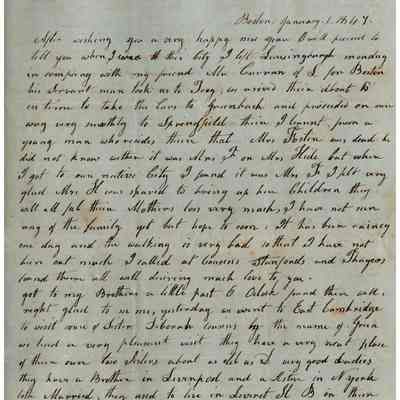 Boston January 1. 1847.
After wishing you a very happy new year I will proceed to
tell you when I came to this City I left Lansingburgh monday
in company with my friend Mr of L for Boston
his Servant man took us to Troy, we arived there about 10
in time to take the Cars to Greenbush and proceeded on our
way very smoothly to Springfield there I learnt from a
young man who resides there that Mrs Foster was dead he
did not know wether it was Mrs F or Mrs Hide but when
I got to our native City I found it was Mrs F I felt very
glad Mrs H was spared to bring up her Children they
will all feel their Mothers loss very much, I have not seen
any of the family yet but hope to soon, It has been rainey
one day and the walking is very bad so that I have not
been out much I called at Cousins Stanfords and Thayers
found them all well desiring much love to you.
got to my Brothers a little past 6 Oclock found them well.
right glad to see me, yesterday we went to East Cambridge
to visit some of Sister Deborah cousins by the name of
we had a very pleasant visit they have a very neat place
of their own two Sisters about as old as I very good Ladies
they have a Brother in Liverpool and a Sister in N york
both Married, they used to live in Leveret St B on their